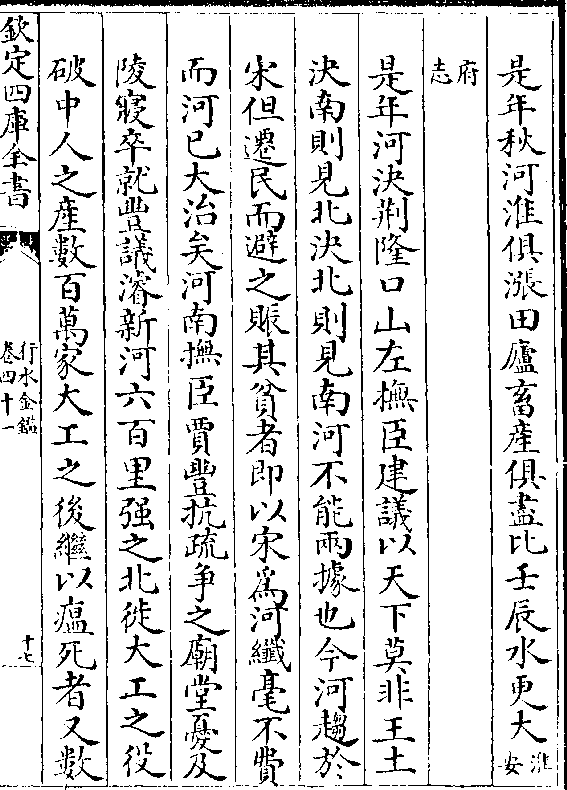 是年秋河淮俱漲田廬畜産俱盡比壬辰水更大淮安
府志
是年河決荆隆口山左撫臣建議以天下莫非王土
決南則見北決北則見南河不能兩據也今河趨於
宋但遷民而避之賑其貧者即以宋爲河纖毫不費
而河已大治矣河南撫臣賈豐抗疏争之廟堂憂及
陵寢卒就豐議濬新河六百里强之北徙大工之役
破中人之産數百萬家大工之後繼以瘟死者又數
欽定四庫全書
行水金鑑
卷四十一
十七